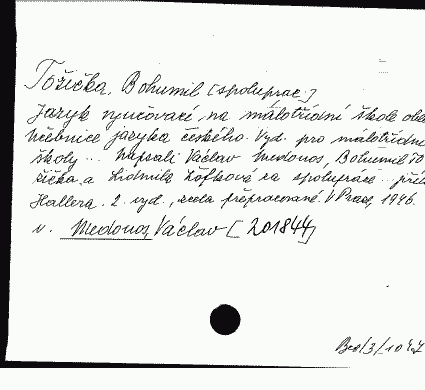 Tožička, Bohumil [spoluprac.]
Jazyk vyučovací na málotřídní škole obe
Učebnice jazyka českého. Vyd. pro málotřídní
školy... Napsali Václav Medonos, Bohumil To
žička a Ludmila Žofková za spolupráce... příl
Hallera. 2. vyd., zcela přepracované. V Praze, 1946.
v. Medonos, Václav [201844]